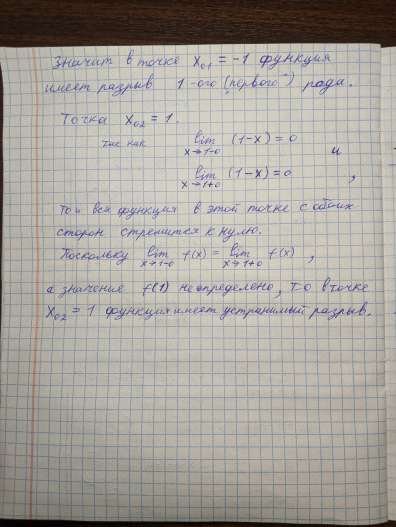 Значит в точке x₀₁ = -1 функция
имеет разрыв 1-ого ("первого") рода.
Точка x₀₂ = 1.
так как lim (1-x) = 0
x→1-0 и
lim (1-x) = 0
x→1+0 ,
то и вся функция в этой точке с обоих
сторон стремится к нулю.
Поскольку lim f(x) = lim f(x) ,
x→1-0 x→1+0
а значение f(1) не определено, то в точке
x₀₂ = 1 функция имеет устранимый разрыв.